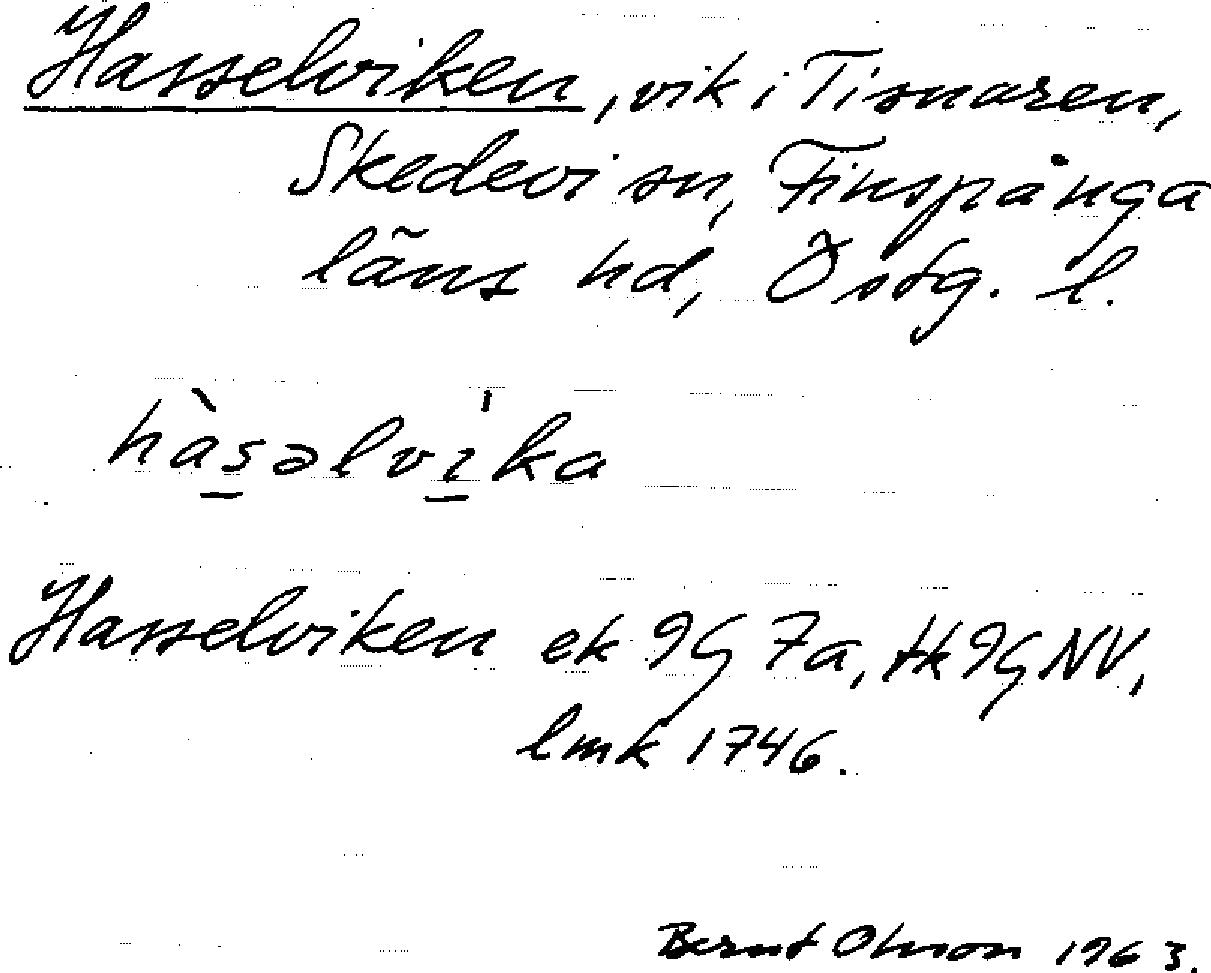 Hasselviken, vik i Tisnaren,
Skedevi sn, Finspånga
läns hd, Östg. l.
hàs̲əlvı̲̍ka
Hasselviken ek 9G 7a, tk 9G NV,
lmk 1746.
Bernt Olsson 1963.